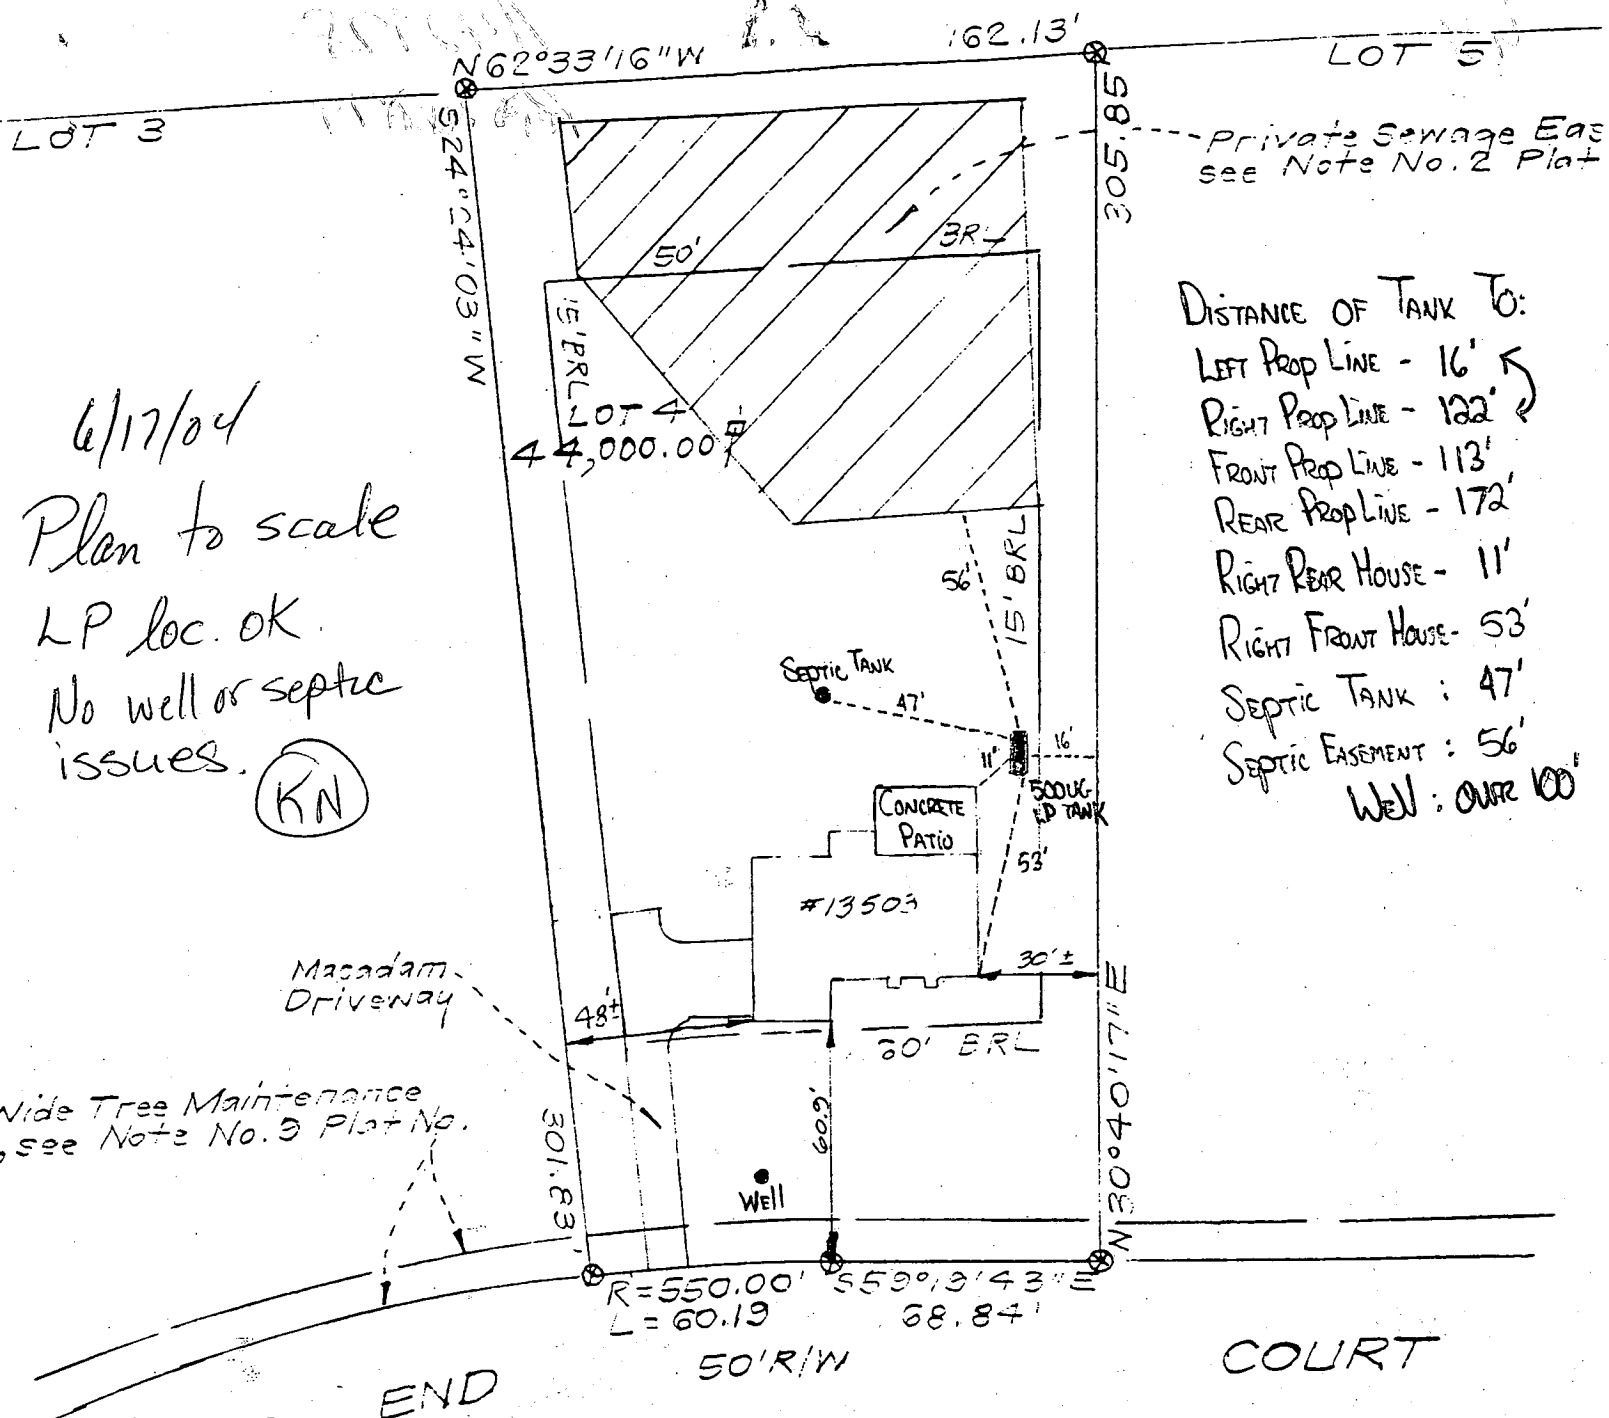 N62°33'16"W
162.13'
LOT 5
LOT 3
S24°24'03"W
305.85
Private Sewage Eas
see Note No.2 Plat
50'
15' BRL
LOT 4
44,000.00
6/17/04
Plan to scale
LP loc. OK.
No well or septic
issues.
KN
DISTANCE OF TANK TO:
LEFT PROP LINE - 16'
RIGHT PROP LINE - 122'
FRONT PROP LINE - 113'
REAR PROP LINE - 172'
RIGHT REAR HOUSE - 11'
RIGHT FRONT HOUSE - 53'
SEPTIC TANK : 47'
SEPTIC EASEMENT : 56'
WELL : OVER 100'
56'
15' BRL
SEPTIC TANK
47'
11'
16'
500UG
LP TANK
CONCRETE
PATIO
53'
#13503
30'±
Macadam
Driveway
48'±
60' BRL
N30°40'17"E
60.9'
Wide Tree Maintenance
, see Note No.9 Plat No.
301.83'
WELL
R=550.00'
L=60.19
S59°19'43"E
68.84'
50'R/W
END
COURT